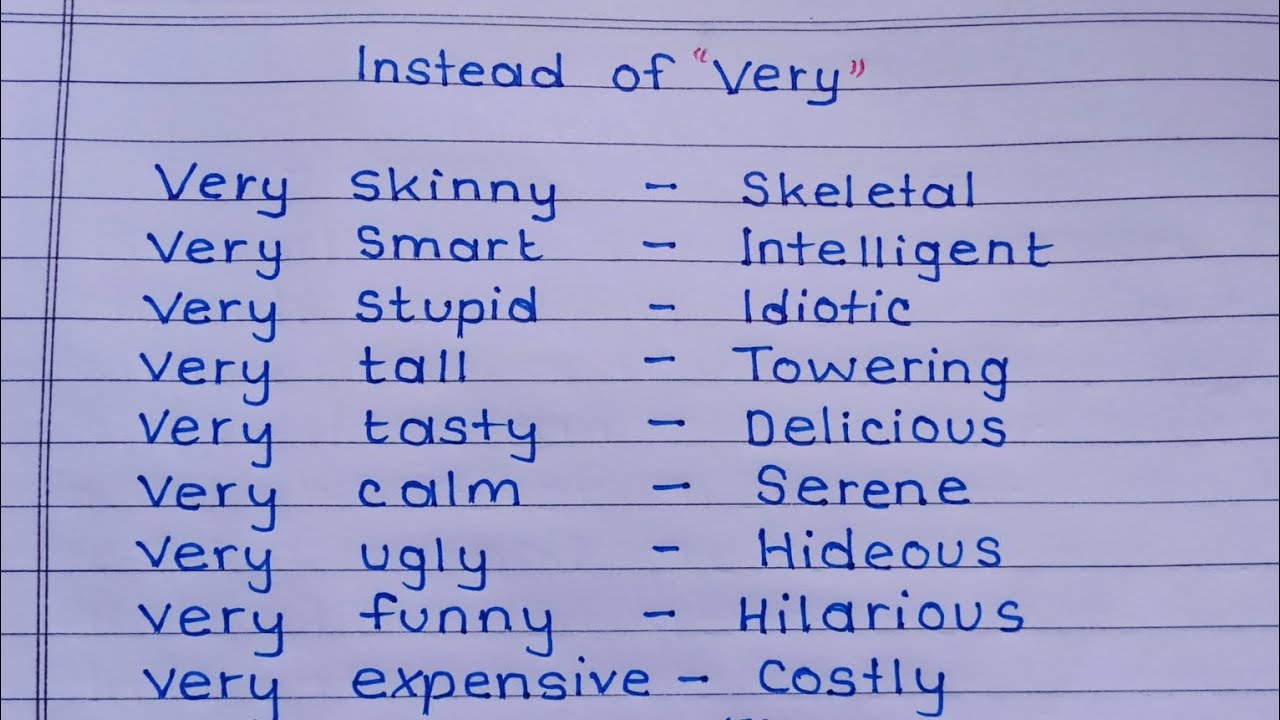 Instead of "Very"
Very skinny - Skeletal
Very smart - Intelligent
Very stupid - Idiotic
Very tall - Towering
Very tasty - Delicious
Very calm - Serene
Very ugly - Hideous
Very funny - Hilarious
Very expensive - Costly